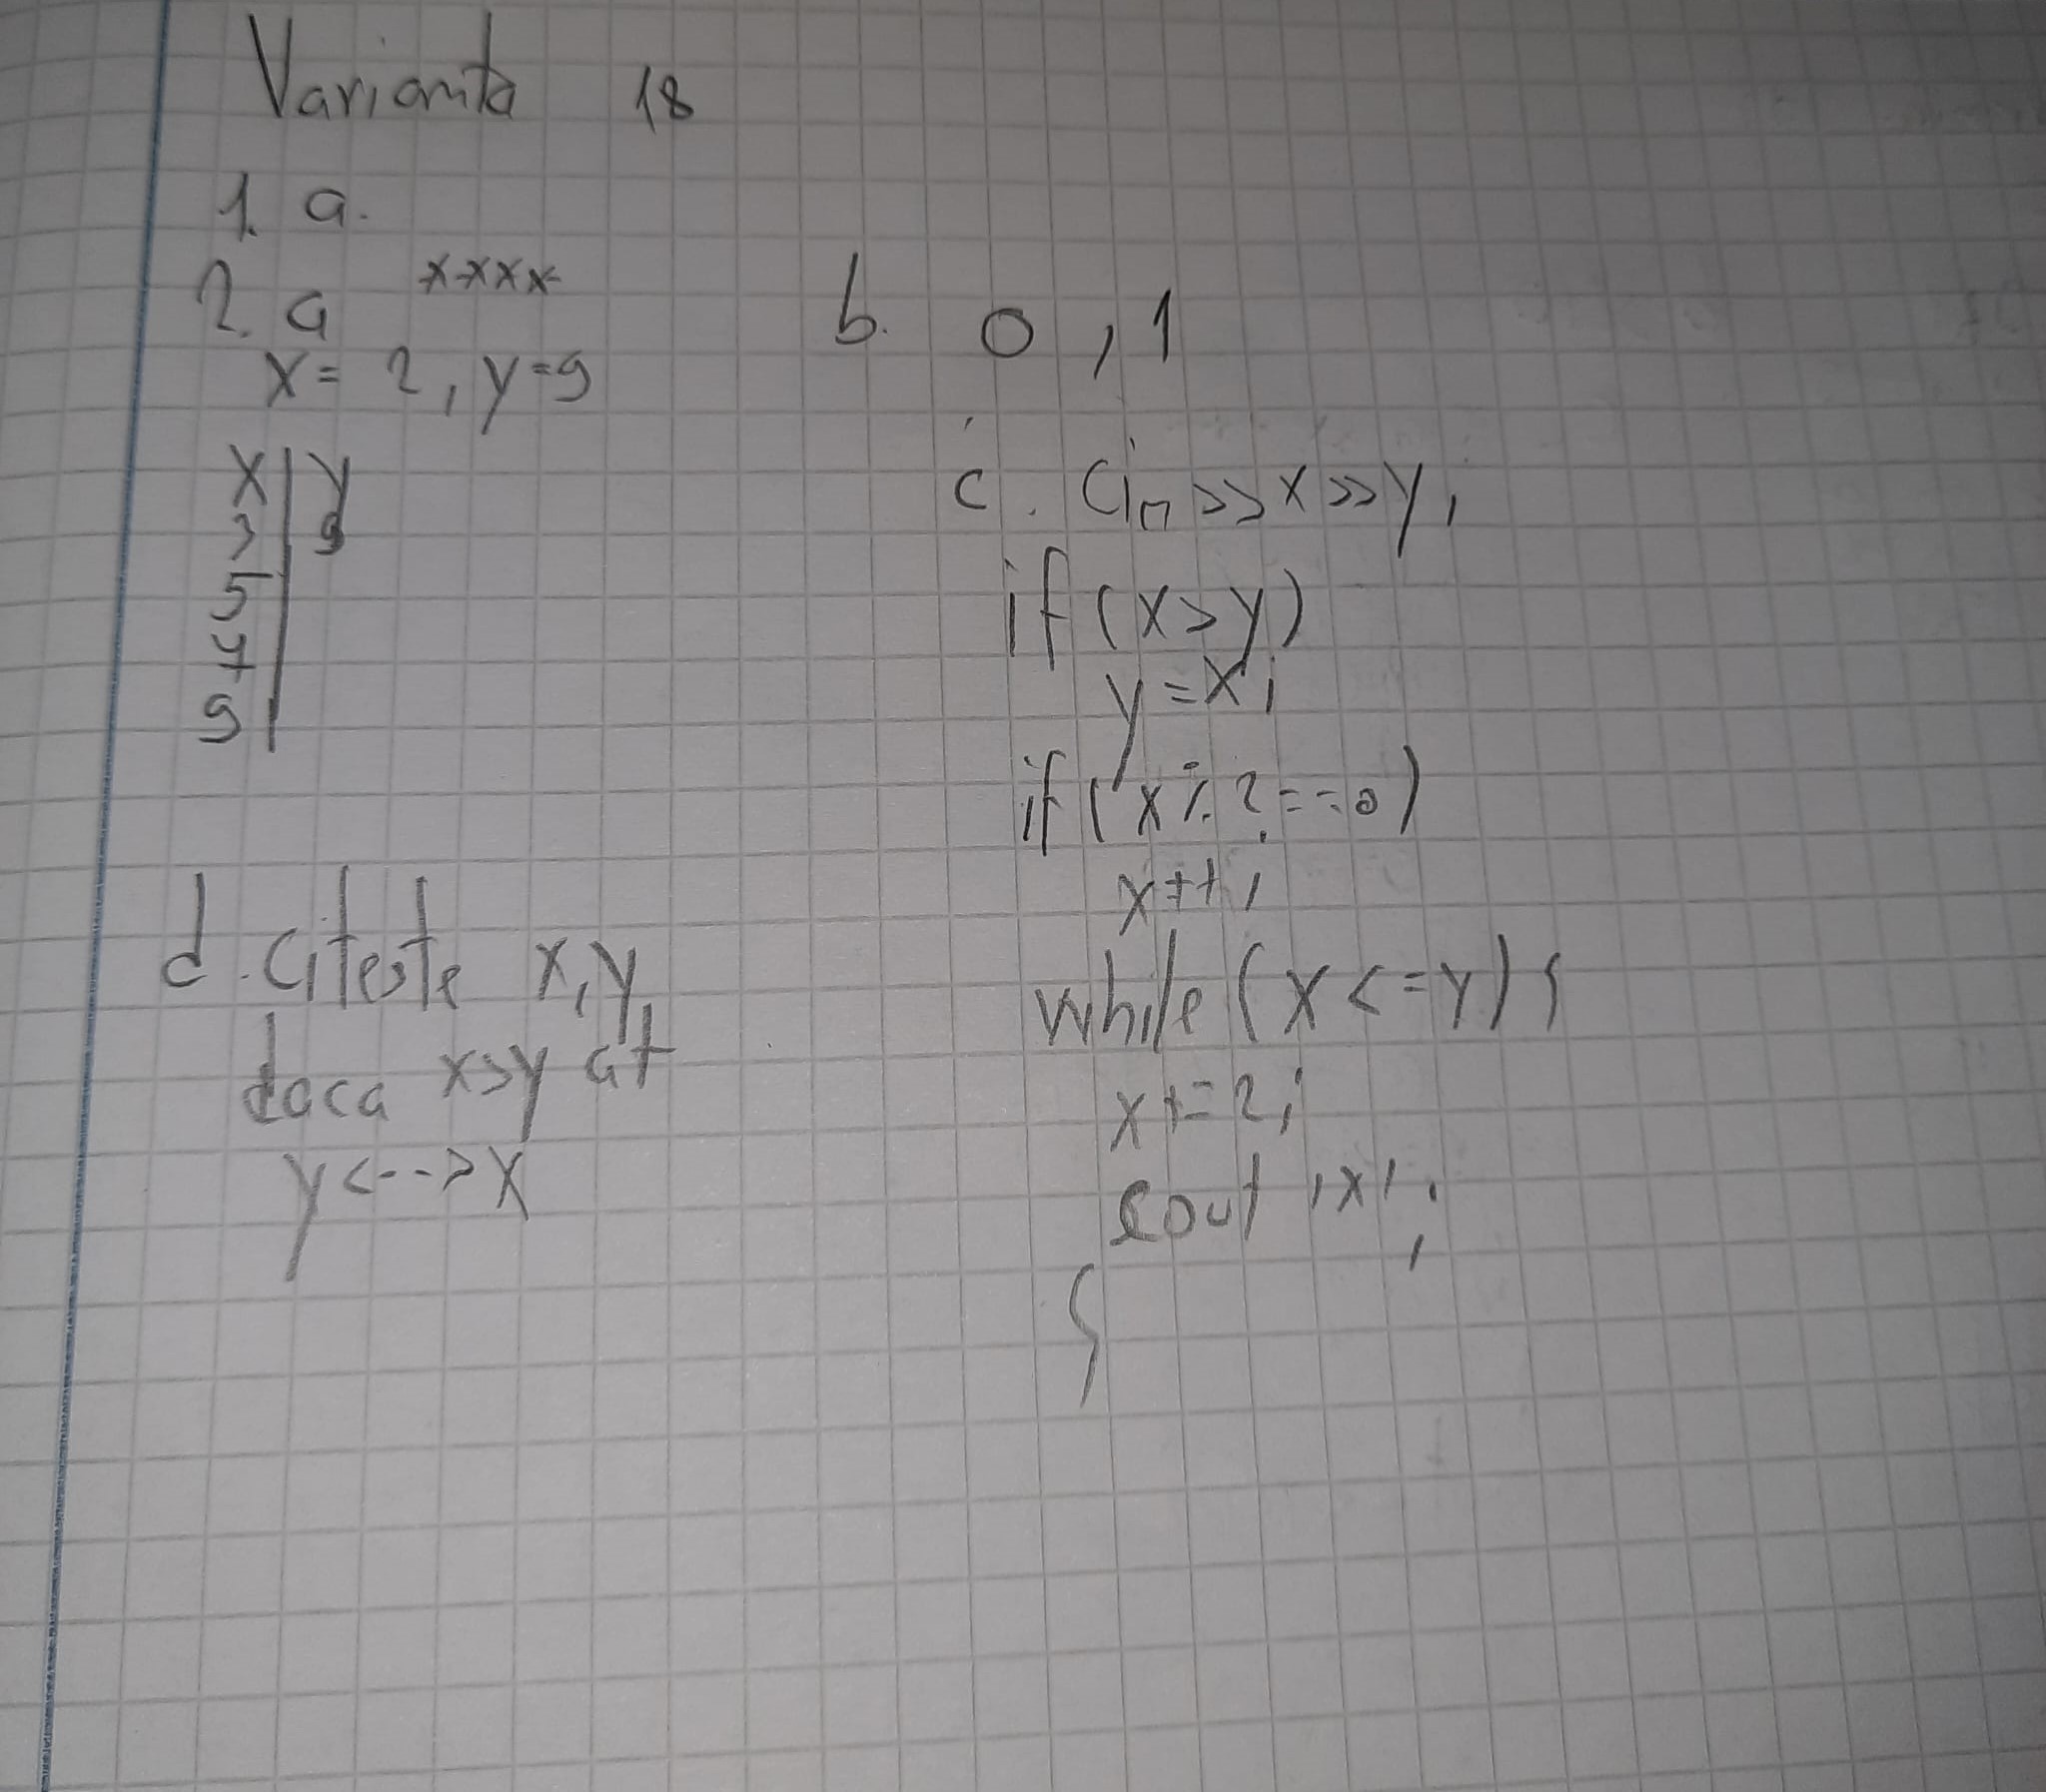 Varianta 18
1. a.
2. a ****
x = 2, y=9
x | y
3 | 9
5
7
9
b. 0, 1
c. Cin >> x >> y;
if (x>y)
y = x;
if (x % 2 == 0)
x++;
while (x <= y) {
x += 2;
cout 'x';
}
d. Citeste x, y
daca x>y at
y <--> x